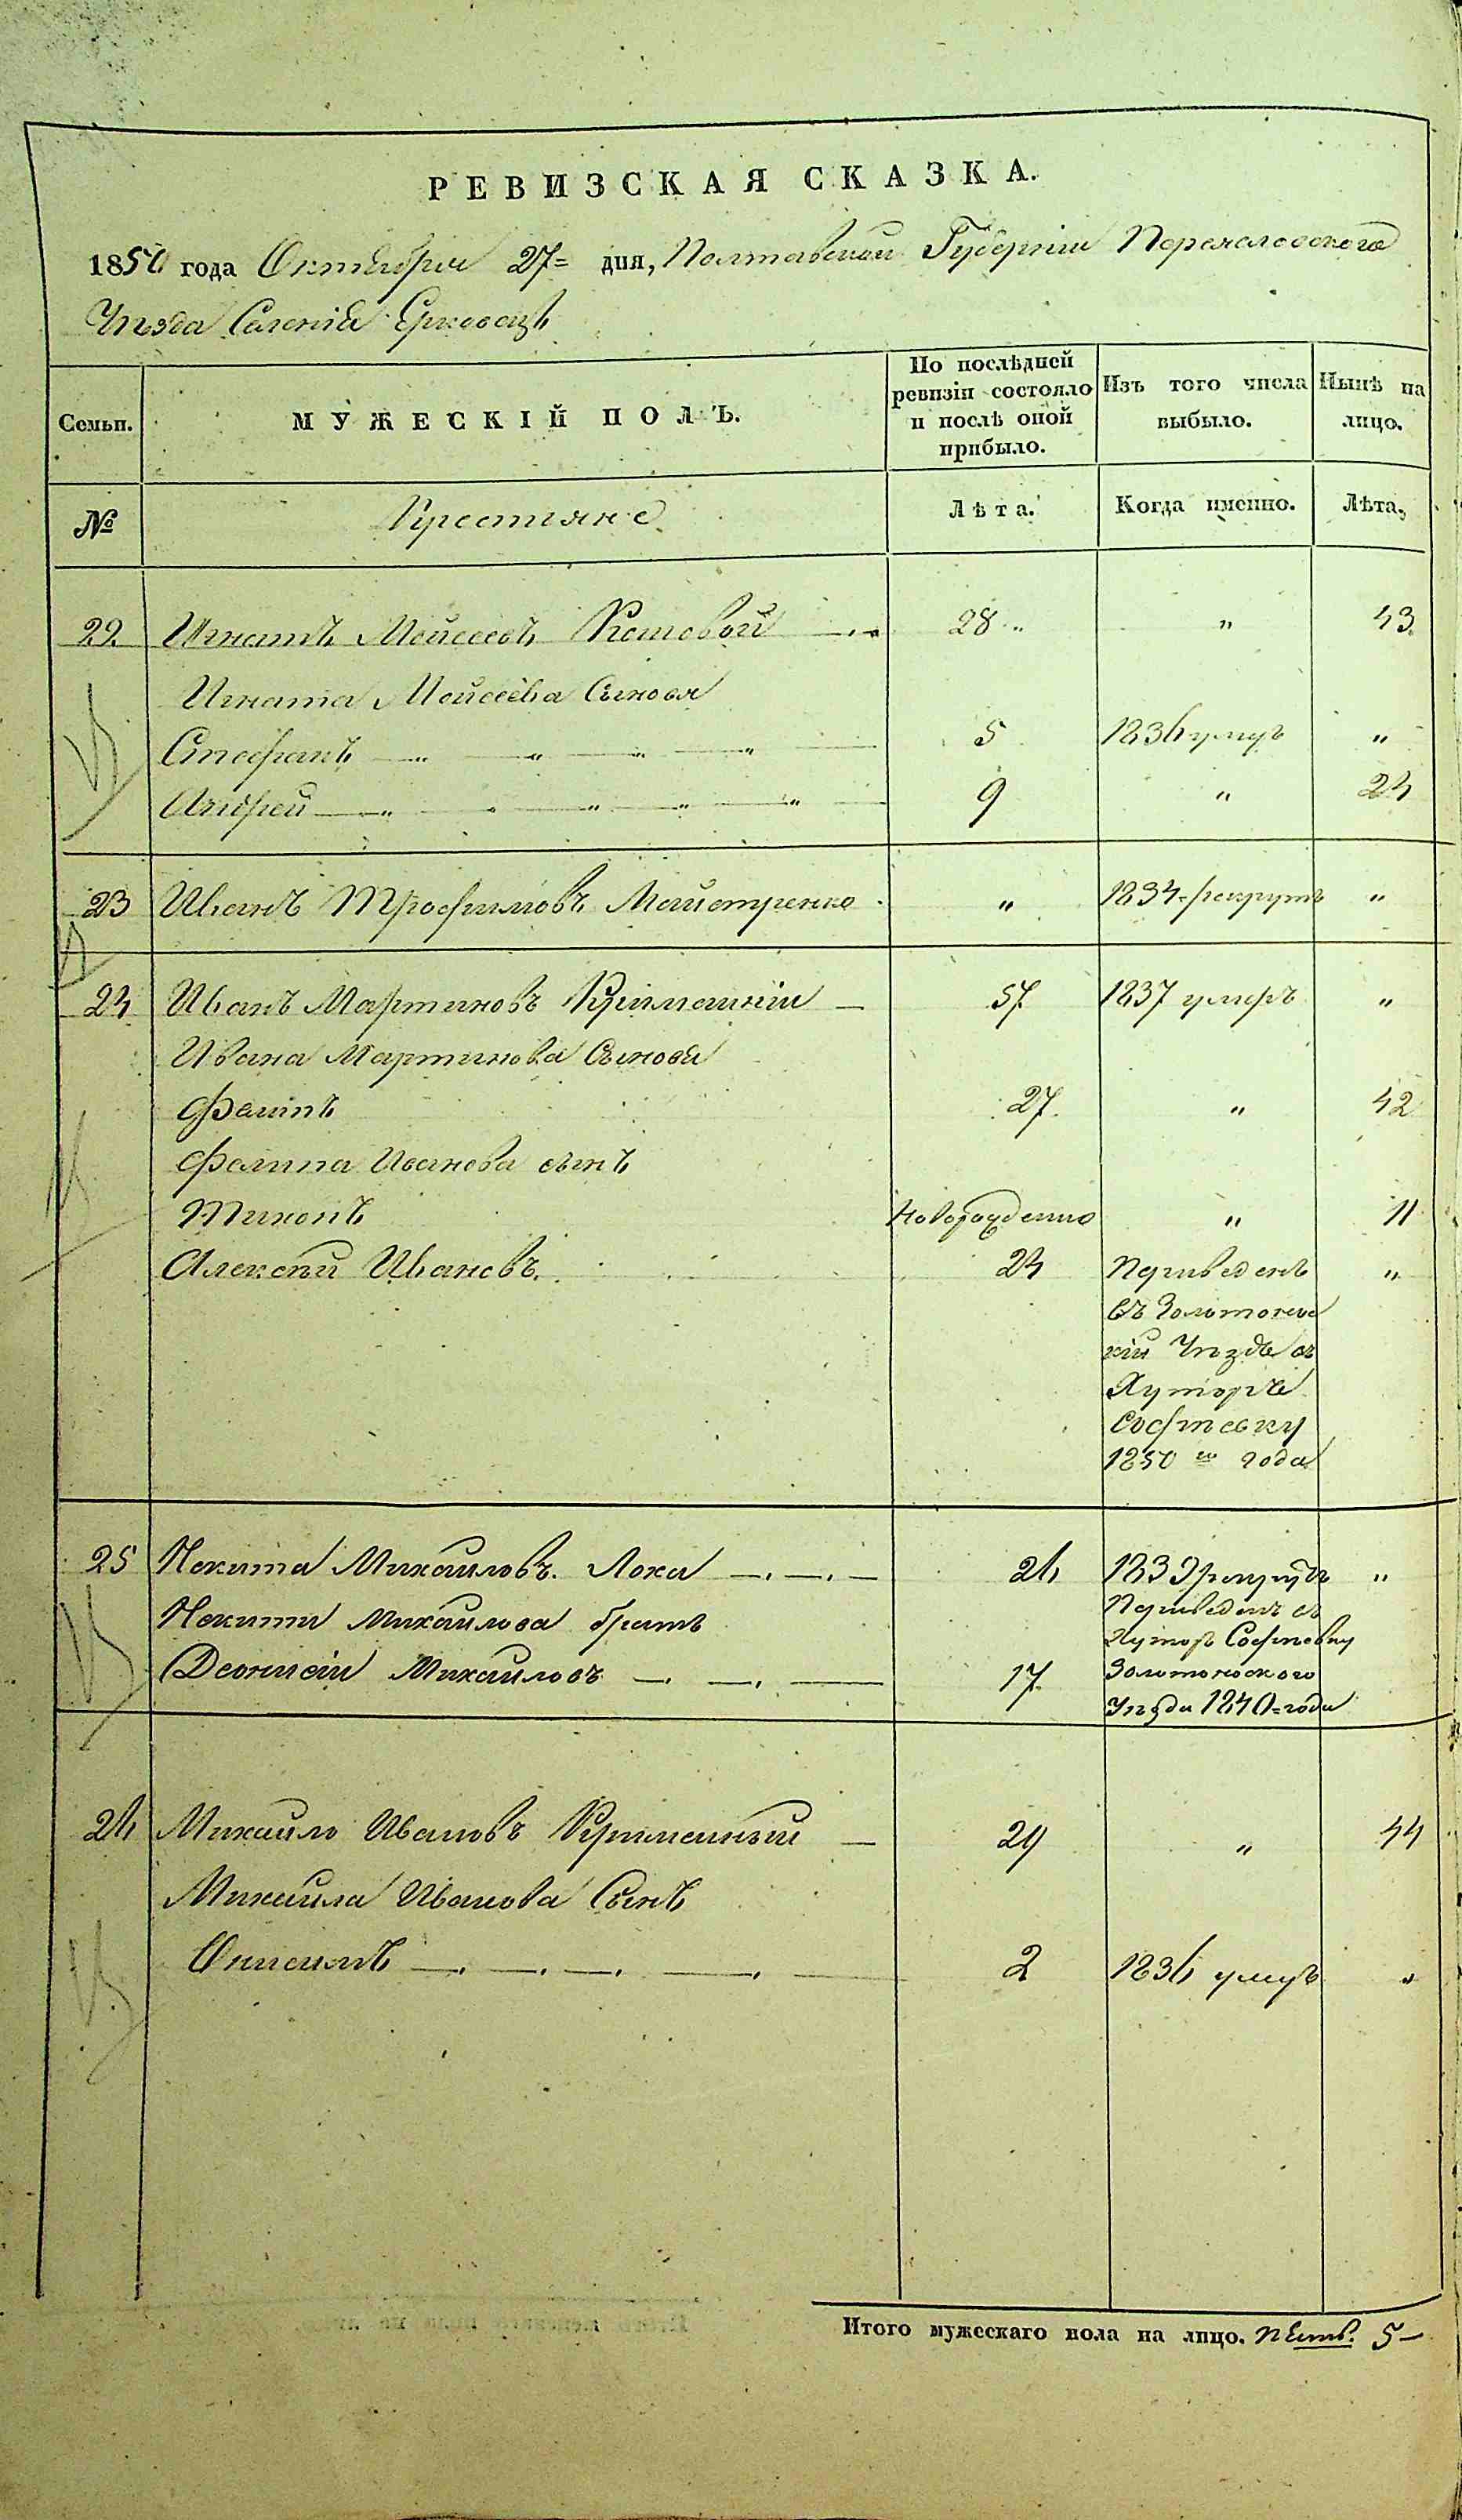 РЕВИЗСКАЯ СКАЗКА.
1850 года Октября 27= дня, Полтавской Губернии Переяславского
Уезда Селения Ерковец
Семьи. МУЖЕСКІЙ ПОЛЪ. По послѣдней ревизіи состояло и послѣ оной прибыло. Изъ того числа выбыло. Нынѣ на лицо.
№ Крестяне Лѣта. Когда именно. Лѣта.
22 Игнатъ Мойсеевъ Котовой 28 " 43
Игната Мойсеева Сыновя
Стефанъ 5 1836 умеръ "
Андрей 9 " 24
23 Иванъ Трофимовъ Майстренко " 1834 рекрутъ "
24 Иванъ Мартиновъ 57 1837 умеръ "
Ивана Мартинова Сыновя
Филипъ 27 " 42
Филипа Иванова сынъ
Тихонъ Новорожденно " 11
Алексей Ивановъ 24 Переведенъ "
въ Золотонос
кій Уездъ въ
Хуторъ
Софиевку
1850 го года
25 Никита Михайловъ Лоха 26 1839 рекрутъ "
Никиты Михайлова братъ Переведенъ въ
Хуторъ Софиевку
Деонисій Михайловъ 17 Золотоноского
Уезда 1840=года
26 Михайло Ивановъ 29 " 44
Михайла Иванова Сынъ
Онисимъ 2 1836 умеръ "
Итого мужескаго пола на лицо. пять. 5